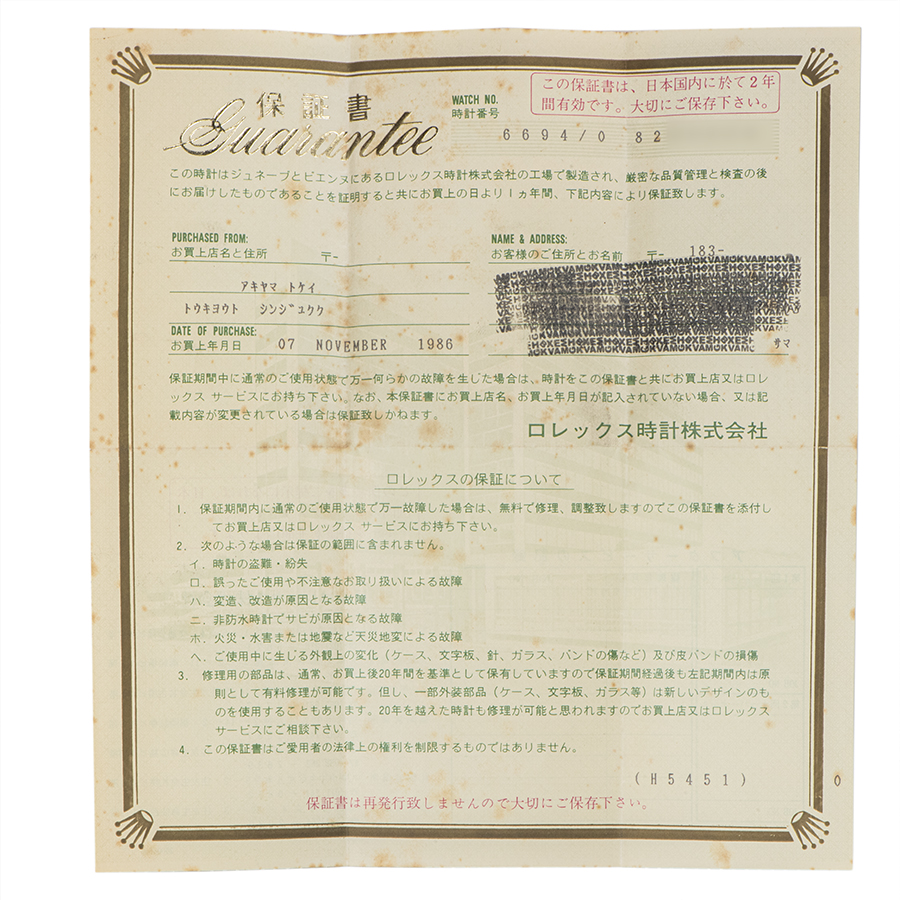 この保証書は、日本国内に於て2年
間有効です。大切にご保存下さい。
保証書
Guarantee
WATCH NO.
時計番号
6694/0 82
この時計はジュネーブとビエンヌにあるロレックス時計株式会社の工場で製造され、厳密な品質管理と検査の後
にお届けしたものであることを証明すると共にお買上の日より1ヵ年間、下記内容により保証致します。
PURCHASED FROM:
お買上店名と住所 〒-
アキヤマ トケイ
トウキヨウト シンジユクク
DATE OF PURCHASE:
お買上年月日 07 NOVEMBER 1986
NAME & ADDRESS:
お客様のご住所とお名前 〒- 183-
サマ
保証期間中に通常のご使用状態で万一何らかの故障を生じた場合は、時計をこの保証書と共にお買上店又はロレ
ックス サービスにお持ち下さい。なお、本保証書にお買上店名、お買上年月日が記入されていない場合、又は記
載内容が変更されている場合は保証致しかねます。
ロレックス時計株式会社
ロレックスの保証について
1. 保証期間内に通常のご使用状態で万一故障した場合は、無料で修理、調整致しますのでこの保証書を添付し
てお買上店又はロレックス サービスにお持ち下さい。
2. 次のような場合は保証の範囲に含まれません。
イ. 時計の盗難・紛失
ロ. 誤ったご使用や不注意なお取り扱いによる故障
ハ. 変造、改造が原因となる故障
ニ. 非防水時計でサビが原因となる故障
ホ. 火災・水害または地震など天災地変による故障
ヘ. ご使用中に生じる外観上の変化（ケース、文字板、針、ガラス、バンドの傷など）及び皮バンドの損傷
3. 修理用の部品は、通常、お買上後20年間を基準として保有していますので保証期間経過後も左記期間内は原
則として有料修理が可能です。但し、一部外装部品（ケース、文字板、ガラス等）は新しいデザインのも
のを使用することもあります。20年を越えた時計も修理が可能と思われますのでお買上店又はロレックス
サービスにご相談下さい。
4. この保証書はご愛用者の法律上の権利を制限するものではありません。
(H5451)
0
保証書は再発行致しませんので大切にご保存下さい。